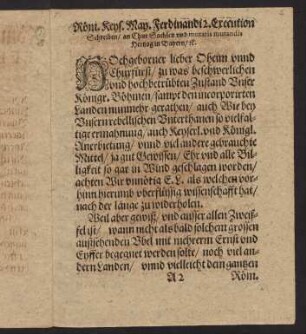 Röm. Keys. May. Ferdinandi 2. Execution
Schreiben / an Chur Sachsen vnd mutatis mutandis
Hertzog in Bayern / ꝛc.
HOchgeborner lieber Oheim vnnd
Churfürst / zu was beschwerlichen
vnd hochbetrübten Zustand Vnser
Königr. Böhmen / sampt den incorporirten
Landen nunmehr gerathen / auch Wir bey
Vnsern rebellischen Vnterthanen so vielfal-
tige ermahnung / auch Keyserl. vnd Königl.
Anerbietung / vnnd viel andere gebrauchte
Mittel / ja gut Gewissen / Ehr vnd alle Bil-
ligkeit so gar in Wind geschlagen worden /
achten Wir vnnötig E. L. als welchen vor-
hinn hierumb vberflüssig wissenschafft hat /
nach der länge zu widerholen.
Weil aber gewiß / vnd ausser allen Zweif-
fel ist / wann nicht alsbald solchem grossen
aussehenden Vbel mit mehrerm Ernst vnd
Eyffer begegnet werden solte / noch viel an-
dern Landen / vnnd vielleicht dem gantzen
A 2 Röm.